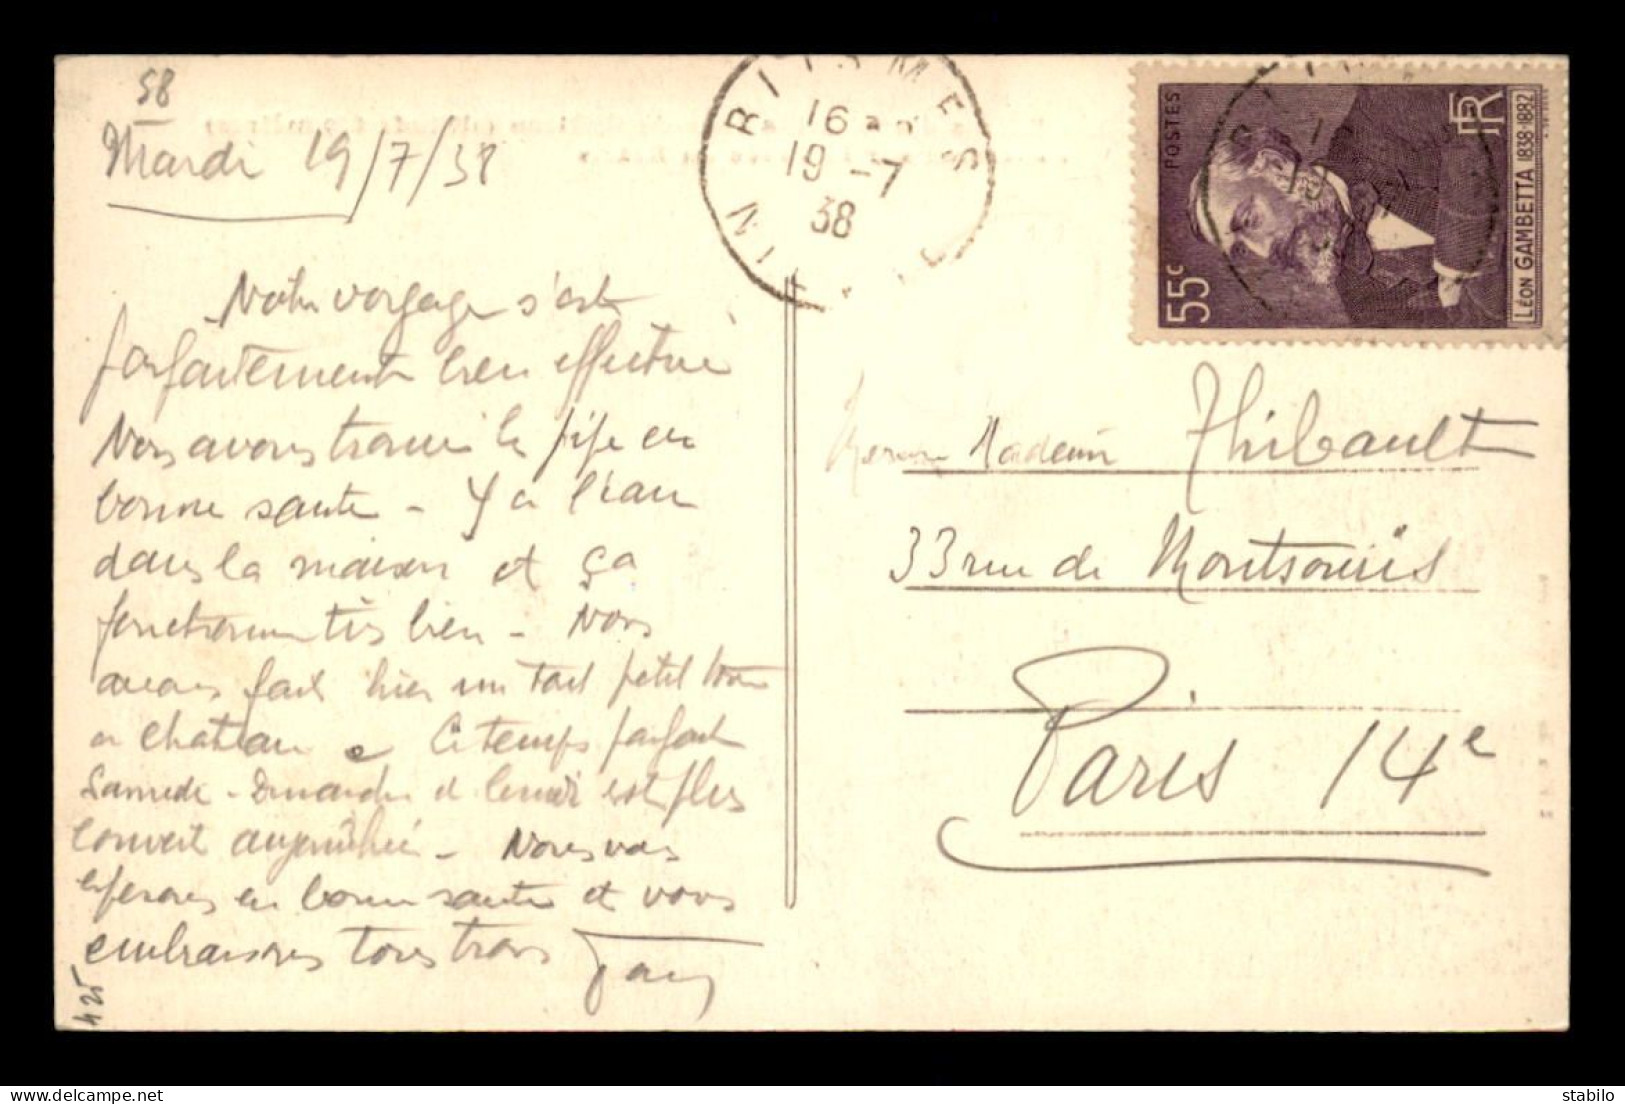 58
Mardi 19/7/38
Notre voyage s'est
parfaitement bien effectué
Nous avons trouvé le pépé en
bonne santé - Y a l'eau
dans la maison et ça
fonctionne très bien - Nous
avons fait hier un tout petit tour
a chateau Le temps parfait
Samedi - Dimanche et lundi est plus
couvert aujourd'hui - Nous vous
esperons en bonne santé et vous
embrassons tous trois
425
16
19 -7
38
POSTES
RF
55c
LÉON GAMBETTA 1838-1882
Thibault
33 rue de Montsouris
Paris 14e
delcampe.net
stabilo